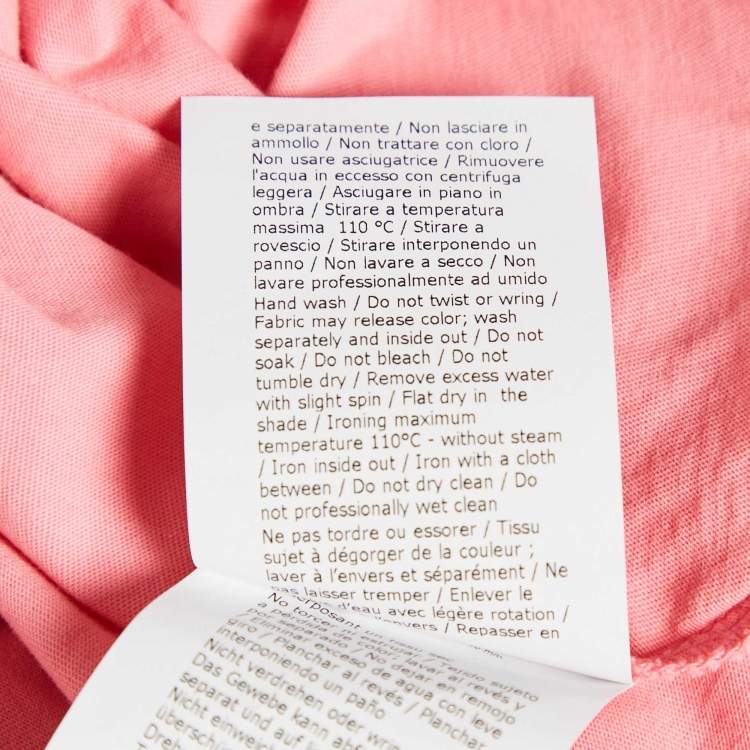 e separatamente / Non lasciare in
ammollo / Non trattare con cloro /
Non usare asciugatrice / Rimuovere
l'acqua in eccesso con centrifuga
leggera / Asciugare in piano in
ombra / Stirare a temperatura
massima 110 °C / Stirare a
rovescio / Stirare interponendo un
panno / Non lavare a secco / Non
lavare professionalmente ad umido
Hand wash / Do not twist or wring /
Fabric may release color; wash
separately and inside out / Do not
soak / Do not bleach / Do not
tumble dry / Remove excess water
with slight spin / Flat dry in the
shade / Ironing maximum
temperature 110°C - without steam
/ Iron inside out / Iron with a cloth
between / Do not dry clean / Do
not professionally wet clean
Ne pas tordre ou essorer / Tissu
sujet à dégorger de la couleur ;
laver à l'envers et séparément / Ne
pas laisser tremper / Enlever le
d'eau avec légère rotation /
envers / Repasser en
No torcer / Tejido sujeto
a lavar al revés y
por separado / No dejar en remojo
/ Eliminar exceso de agua con leve
giro / Planchar al revés / Planchar
interponiendo un paño
Nicht verdrehen oder
Das Gewebe kann
separat und auf
Nicht